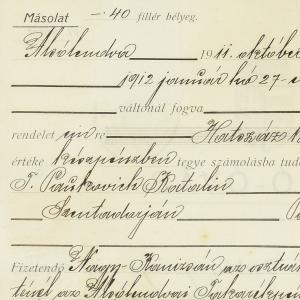 Másolat — 40 fillér bélyeg.
Alsólendva 1911. október
1912 január hó 27-
váltónál fogva
rendelet ejn re Hatszáz
értéke készpénzben tegye számolásba
T. Pauskovich Katalin
Szentadorján
Fizetendő Nagy-Kanizsán az osztrák
az Alsólendvai Takarékpén